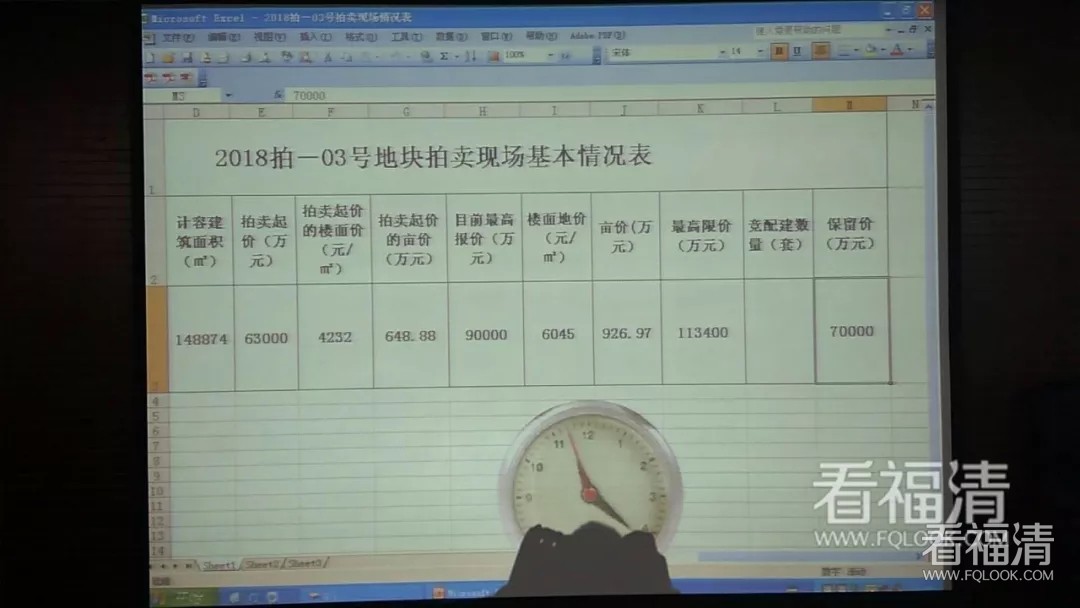 Microsoft Excel - 2018拍一03号拍卖现场情况表
文件(F) 编辑(E) 视图(V) 插入(I) 格式(O) 工具(T) 数据(D) 窗口(W) 帮助(H) Adobe PDF(B)
100% 宋体 14 B U A
M3 fx 70000
D E F G H I J K L N
2018拍一03号地块拍卖现场基本情况表
1
计容建筑面积(㎡) 拍卖起价(万元) 拍卖起价的楼面价(元/㎡) 拍卖起价的亩价(万元) 目前最高报价(万元) 楼面地价(元/㎡) 亩价(万元) 最高限价(万元) 竞配建数量(套) 保留价(万元)
2
148874 63000 4232 648.88 90000 6045 926.97 113400 70000
3
4
5
6
7
8
9
10
11
12
13
14
12
11
1
10
2
9
3
Sheet1 Sheet2 Sheet3
看福清
WWW.FQLOOK.COM
看福清
WWW.FQLOOK.COM